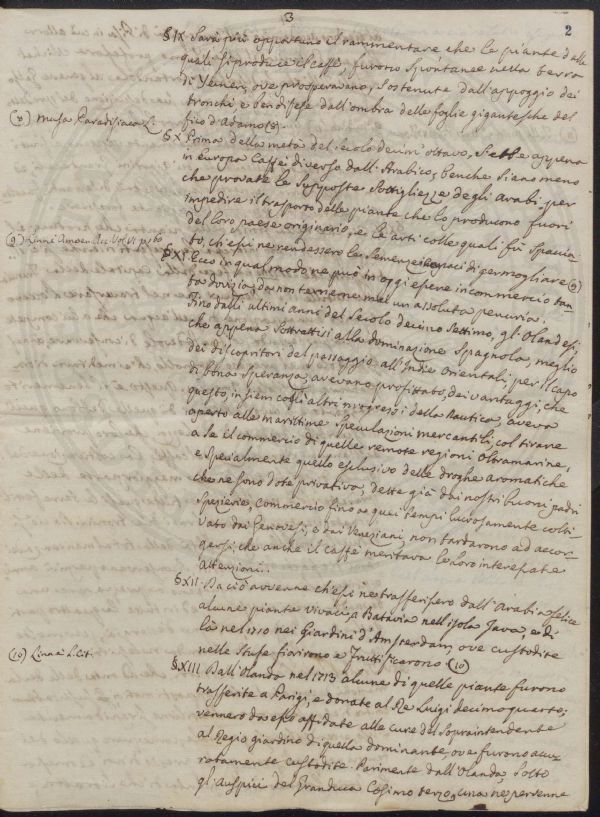 3
2
§ IX Sarà più opportuno il rammentare che le piante dalle
quali si produce il caffè, furono spontanee nella terra
di Yemen, ove prosperavano, sostenute dall'appoggio dei
tronchi e ben difese dall'ombra delle foglie gigantesche del
fico d'Adamo (8).
(8) Musa Paradisiaca L.
§ X Prima della metà del secolo decim'ottavo, s'ebbe appena
in Europa Caffè diverso dall'Arabico, benche siano meno
che provate le supposte sottigliezze degli arabi per
impedire il trasporto delle piante che lo producono fuori
del loro paese originario, e le arti colle quali fù spaccia-
to, ch'essi ne rendessero le semenze incapaci di germogliare (9)
(9) Linnè Amoen. Acc. Vol. VI p. 160
§ XI Ecco in qual modo ne può in oggi essere in commercio tan-
ta dovizia, da non temerne mai un'assoluta penuria.
Fino dalli ultimi anni del Secolo decimo settimo, gl'Olandesi,
che appena sottrattisi alla dominazione Spagnola, meglio
dei discopritori del passaggio all'Indie Orientali, per il Capo
di Bona Speranza, avevano profittato, dei vantaggi, che
questo, insiem cogli altri progressi della Nautica, aveva
aperto alle marittime speculazioni mercantili, col tirare
a se il commercio di quelle remote regioni Oltramarine,
e specialmente quello esclusivo delle droghe aromatiche
che ne sono dote privativa, dette già dai nostri buoni padri
Spezierie, commercio fino a quei tempi lucrosamente colti-
vato dai Genovesi, e dai Veneziani, non tardarono ad accor-
gersi, che anche il caffè meritava le loro interessate
attenzioni.
§ XII. Da ciò avvenne ch'essi ne trasferissero dall'Arabia felice
alcune piante vivaci, a Batavia nell'isola Java, e di
là nel 1710 nei Giardini d'Amsterdam, ove custodite
nelle Stufe fiorirono e fruttificarono (10)
(10) Linnè l. cit.
§ XIII Dall'Olanda nel 1713 alcune di quelle piante furono
trasferite a Parigi, e donate al Re Luigi decimoquarto;
vennero da esso affidate alle cure del Sopraintendente
al Regio giardino di quella dominante, ove furono accu-
ratamente custodite. Parimente dall'Olanda, sotto
gl'auspici del Granduca Cosimo terzo, una ne pervenne